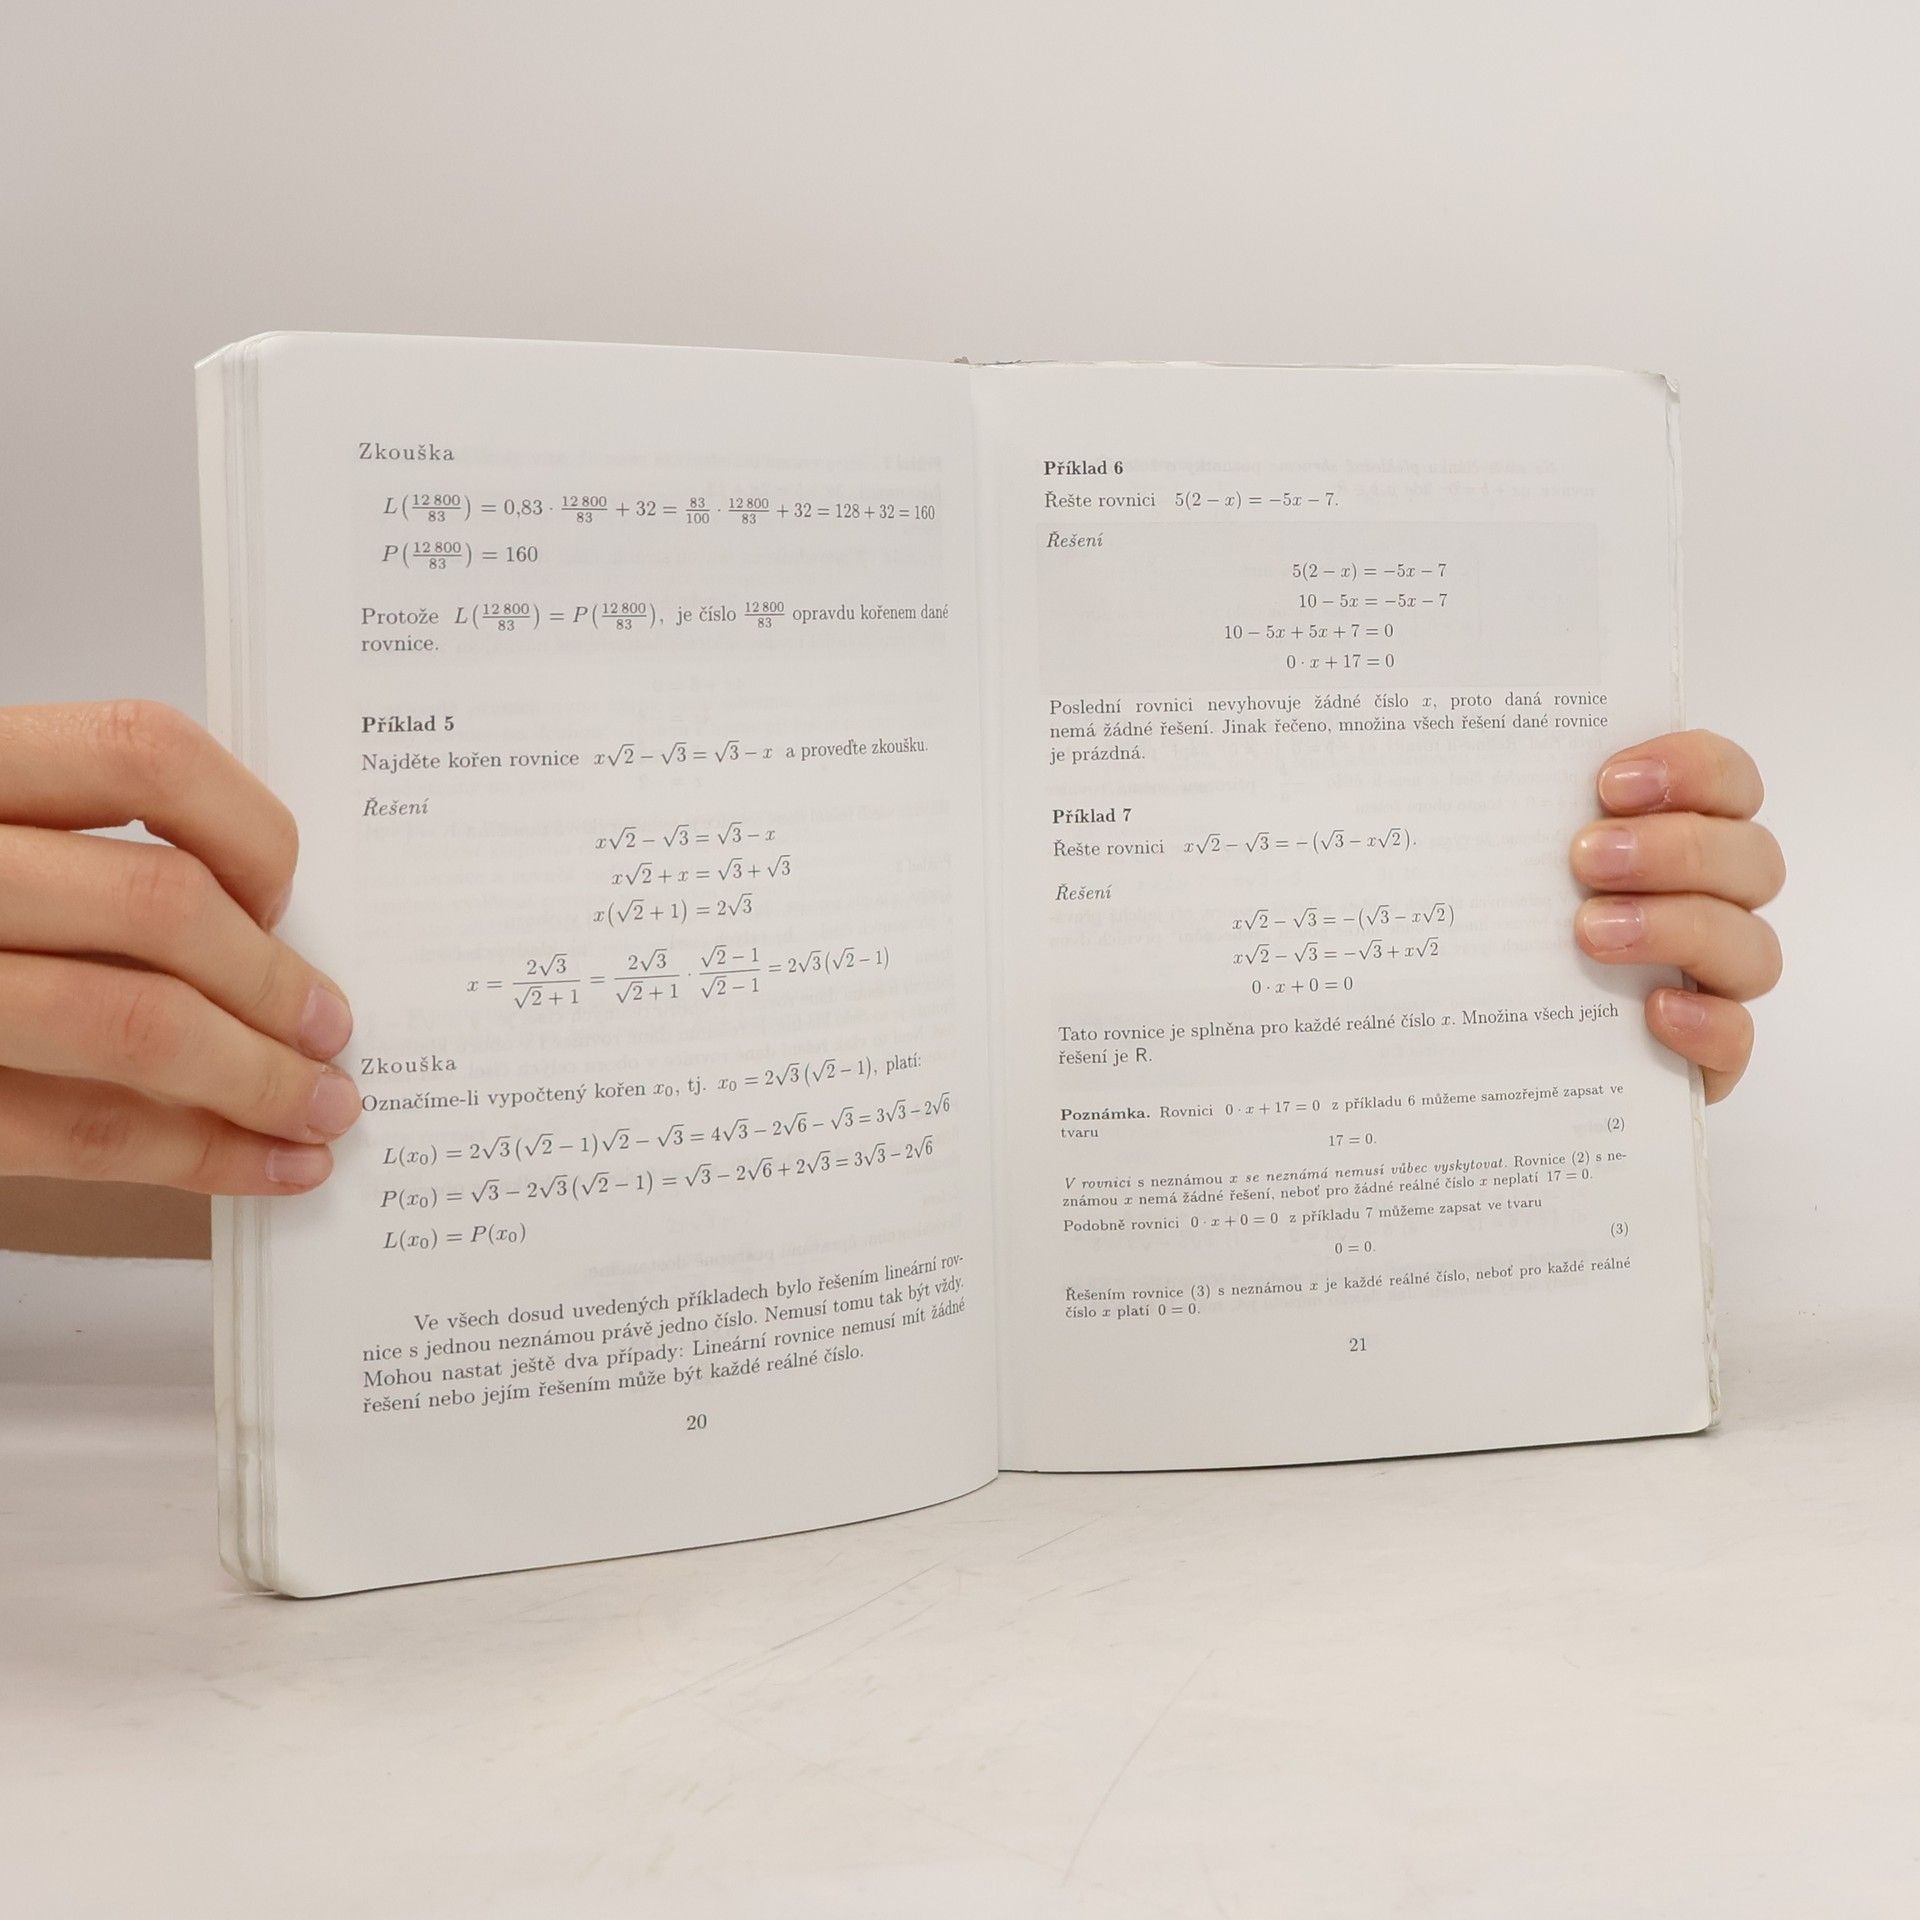 Zkouška
L(12 800/83) = 0,83 · 12 800/83 + 32 = 83/100 · 12 800/83 + 32 = 128 + 32 = 160
P(12 800/83) = 160
Protože L(12 800/83) = P(12 800/83), je číslo 12 800/83 opravdu kořenem dané
rovnice.
Příklad 5
Najděte kořen rovnice x√2 − √3 = √3 − x a proveďte zkoušku.
Řešení
x√2 − √3 = √3 − x
x√2 + x = √3 + √3
x(√2 + 1) = 2√3
x = 2√3/(√2 + 1) = 2√3/(√2 + 1) · (√2 − 1)/(√2 − 1) = 2√3(√2 − 1)
Zkouška
Označíme-li vypočtený kořen x₀, tj. x₀ = 2√3(√2 − 1), platí:
L(x₀) = 2√3(√2 − 1)√2 − √3 = 4√3 − 2√6 − √3 = 3√3 − 2√6
P(x₀) = √3 − 2√3(√2 − 1) = √3 − 2√6 + 2√3 = 3√3 − 2√6
L(x₀) = P(x₀)
Ve všech dosud uvedených příkladech bylo řešením lineární rov-
nice s jednou neznámou právě jedno číslo. Nemusí tomu tak být vždy.
Mohou nastat ještě dva případy: Lineární rovnice nemusí mít žádné
řešení nebo jejím řešením může být každé reálné číslo.
20
Příklad 6
Řešte rovnici 5(2 − x) = −5x − 7.
Řešení
5(2 − x) = −5x − 7
10 − 5x = −5x − 7
10 − 5x + 5x + 7 = 0
0 · x + 17 = 0
Poslední rovnici nevyhovuje žádné číslo x, proto daná rovnice
nemá žádné řešení. Jinak řečeno, množina všech řešení dané rovnice
je prázdná.
Příklad 7
Řešte rovnici x√2 − √3 = −(√3 − x√2).
Řešení
x√2 − √3 = −(√3 − x√2)
x√2 − √3 = −√3 + x√2
0 · x + 0 = 0
Tato rovnice je splněna pro každé reálné číslo x. Množina všech jejích
řešení je R.
Poznámka. Rovnici 0 · x + 17 = 0 z příkladu 6 můžeme samozřejmě zapsat ve
tvaru
17 = 0. (2)
V rovnici s neznámou x se neznámá nemusí vůbec vyskytovat. Rovnice (2) s ne-
známou x nemá žádné řešení, neboť pro žádné reálné číslo x neplatí 17 = 0.
Podobně rovnici 0 · x + 0 = 0 z příkladu 7 můžeme zapsat ve tvaru
0 = 0. (3)
Řešením rovnice (3) s neznámou x je každé reálné číslo, neboť pro každé reálné
číslo x platí 0 = 0.
21